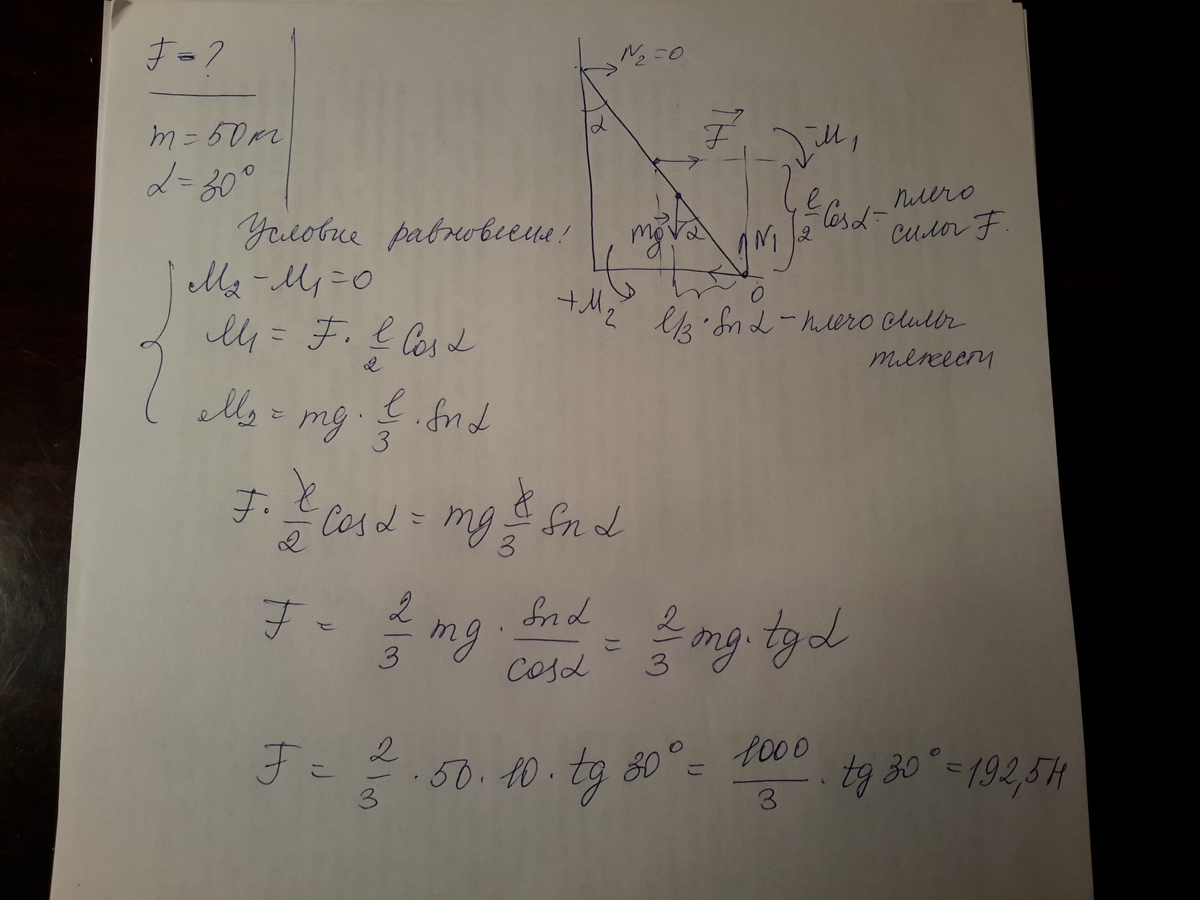 F = ?
m = 50 кг
α = 30°
N₂ = 0
α
F
-M₁
mg
α
N₁
l/2 Cosα - плечо
силы F.
O
+M₂
l/3 · Sinα - плечо силы
тяжести
Условие равновесия:
M₂ - M₁ = 0
M₁ = F · l/2 Cosα
M₂ = mg · l/3 · Sinα
F · l/2 Cosα = mg l/3 Sinα
F = 2/3 mg · Sinα/cosα = 2/3 mg · tgα
F = 2/3 · 50 · 10 · tg 30° = 1000/3 · tg 30° = 192,5 Н